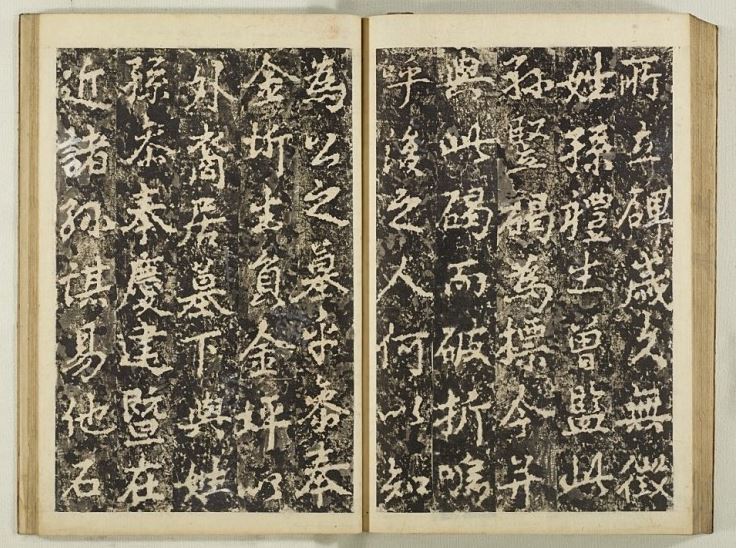 所立碑歲久無徵
姪孫體生曾監此
孫豎碣為標今并
與此碣而破折嗚
呼後之人何以知
為公之墓乎恭奉
金圻生負金坪以
外裔居墓下與姪
孫泰奉慶建暨在
近諸孫謀易他石